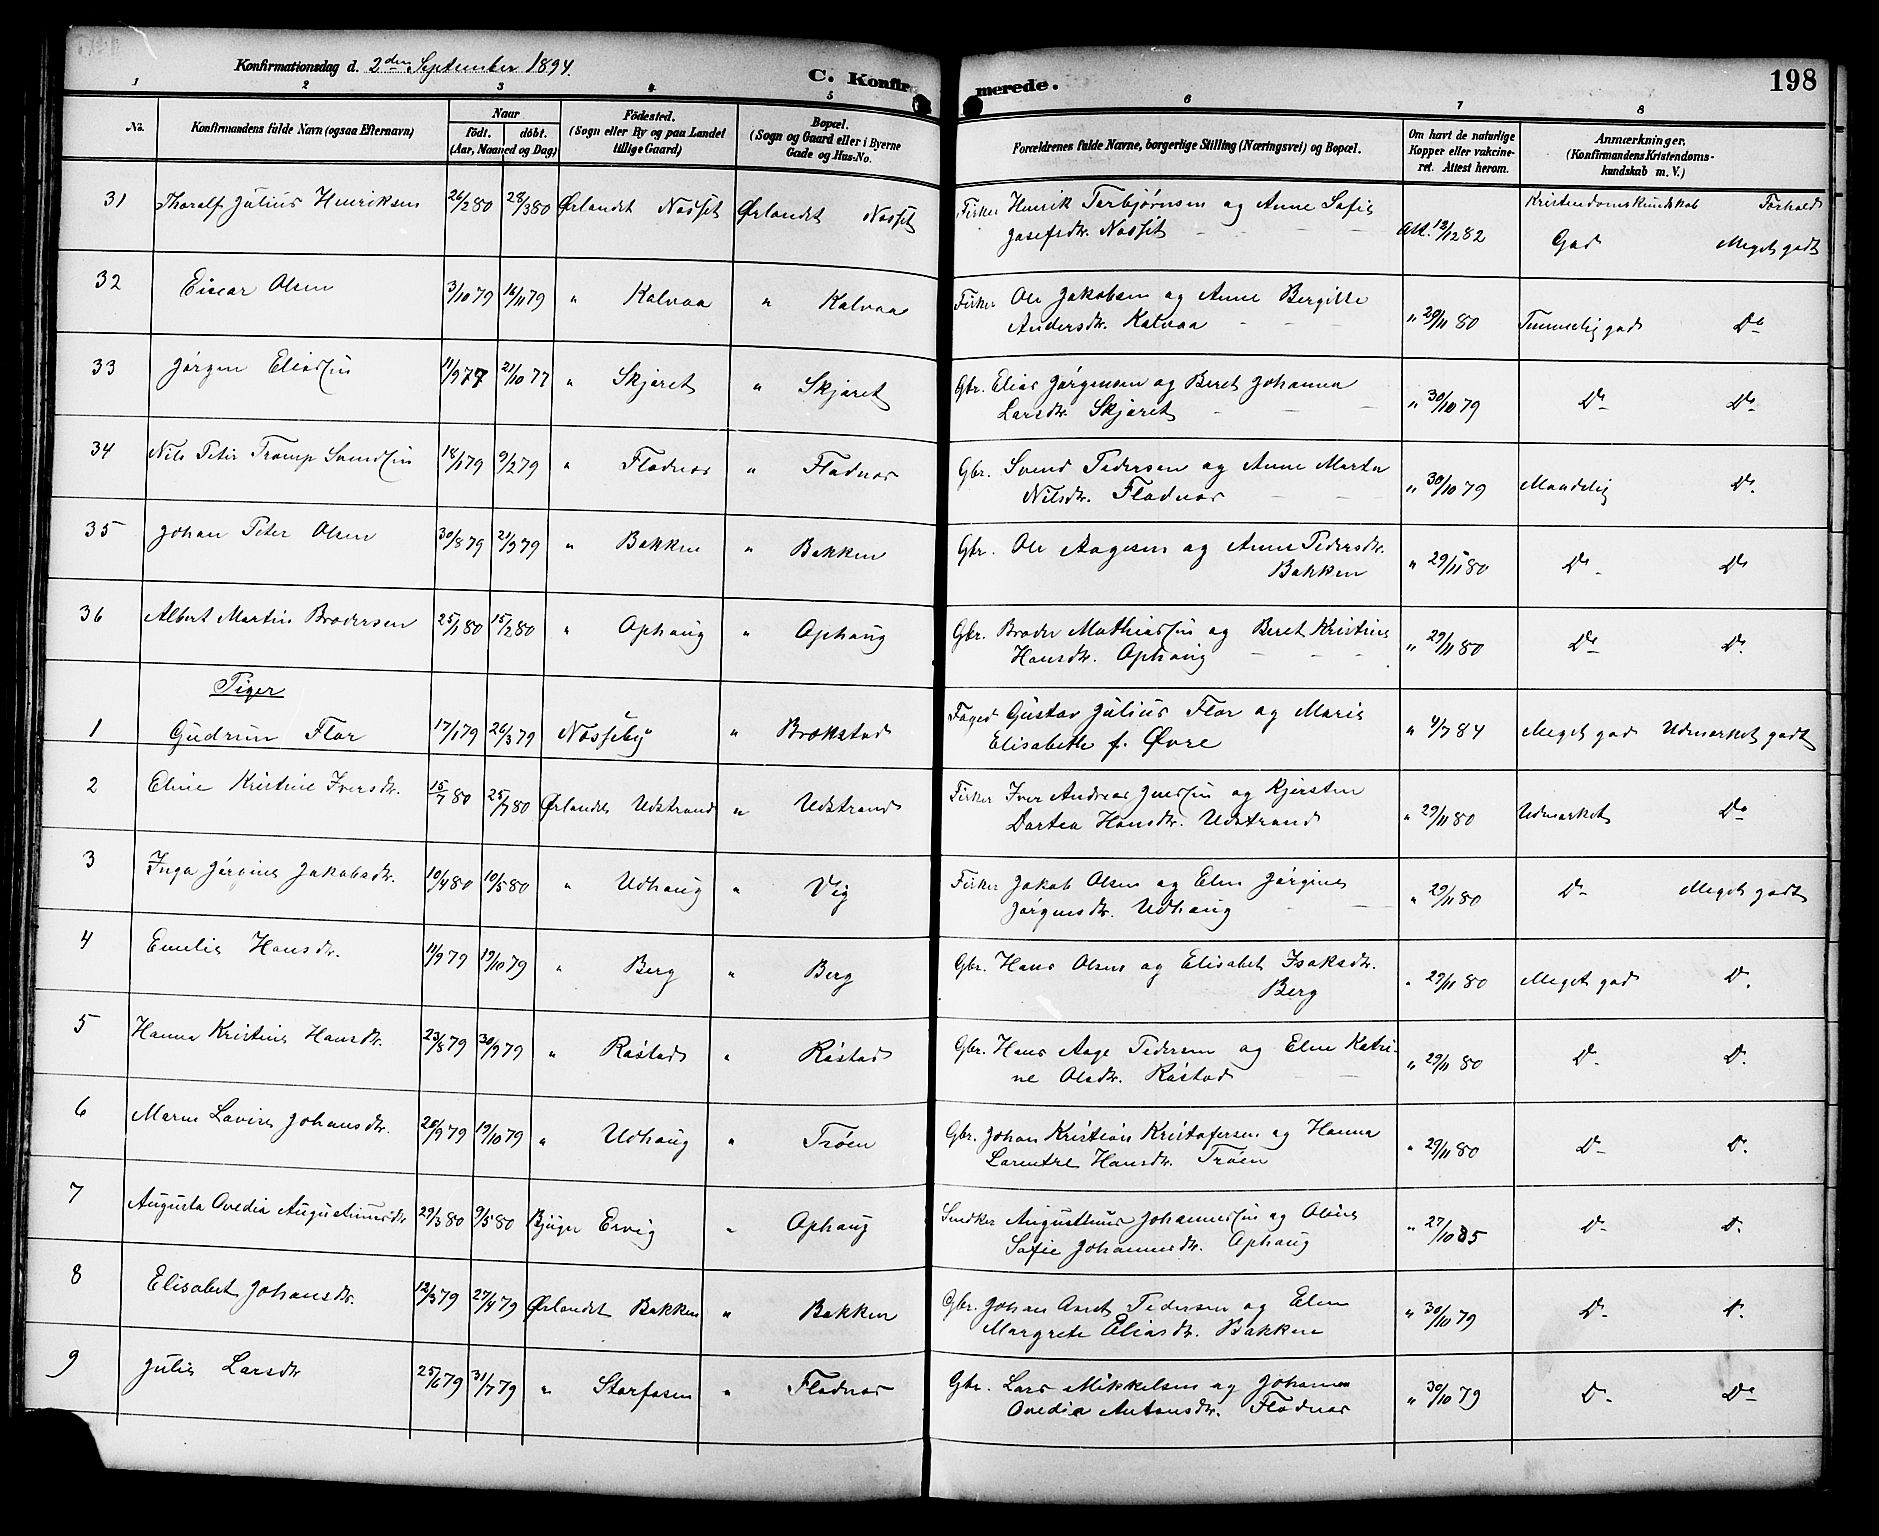 Konfirmationsdag d. 2den September 1894.
C. Konfirmerede.
198
1 2 3 4 5 6 7 8
No. Konfirmandens fulde Navn (ogsaa Efternavn) Naar født. døbt. (Aar, Maaned og Dag) Fødested. (Sogn eller By og paa Landet tillige Gaard) Bopæl. (Sogn og Gaard eller i Byerne Gade og Hus-No. Forældrenes fulde Navne, borgerlige Stilling (Næringsvei) og Bopæl. Om havt de naturlige Kopper eller vakcineret. Attest herom. Anmærkninger. (Konfirmandens Kristendomskundskab m. V.)
Kristendomskundskab Forhold
31 Tharalf Julius Henriksen 26/2 80 28/3 80 Ørlandet Nosset Ørlandet Nosset Fisker Henrik Torbjørnsen og Anne Sofie
Josefsdtr. Nosset Att. 13/12 82 God Meget godt
32 Eisear Olsen 3/10 79 16/11 79 " Kalvaa " Kalvaa Fisker Ole Jakobsen og Anne Bergitte
Andersdtr. Kalvaa " 29/11 80 Temmelig god Do
33 Jørgen Eliassen 11/9 77 21/10 77 " Skjøret " Skjøret Gbr. Elias Jørgensen og Beret Johanna
Larsdtr. Skjøret " 30/10 79 Do Do
34 Nils Peter Tromp Svendsen 18/1 79 9/2 79 " Flødnes " Flødnes Gbr. Svend Pedersen og Anne Marta
Nilsdtr. Flødnes " 30/10 79 Maadelig Do
35 Johan Peter Olsen 30/8 79 21/9 79 " Bakken " Bakken Gbr. Ole Aagesen og Anne Pedersdtr.
Bakken " 29/11 80 Do Do
36 Albert Martin Brodersen 25/1 80 15/2 80 " Ophaug " Ophaug Gbr. Broder Mathiassen og Beret Kristine
Hansdtr. Ophaug " 29/11 80 Do Do
Piger
1 Gudrun Flor 17/1 79 26/3 79 Nosseby " Brækstad Foged Gustav Julius Flor og Marie
Elisabeth f. Øvre " 4/7 84 Meget god Udmærket godt
2 Eline Kristine Iversdtr. 15/7 80 25/7 80 Ørlandet Udstrand " Udstrand Fisker Iver Andreas Iversen og Kjersten
Dortea Hansdtr. Udstrand " 29/11 80 Udmærket Do
3 Inga Jørgine Jakobsdtr. 10/4 80 10/5 80 " Udhaug " Vig Fisker Jakob Olsen og Elen Jørgine
Jørgensdtr. Udhaug " 29/11 80 Do Meget godt
4 Emelie Hansdtr. 11/9 79 19/10 79 " Berg " Berg Gbr. Hans Olsen og Elisabet Isaksdtr.
Berg " 29/11 80 Meget god Do
5 Hanna Kristine Hansdtr. 23/8 79 30/9 79 " Røstad " Røstad Gbr. Hans Aage Pedersen og Elen Katri-
ne Olsdtr. Røstad " 29/11 80 Do Do
6 Maren Lovise Johansdtr. 20/9 79 19/10 79 " Udhaug " Trøen Gbr. Johan Kristian Kristofersen og Hanna
Lorentze Hansdtr. Trøen " 29/11 80 Do Do
7 Augusta Ovedia Augustinusdtr. 29/3 80 9/5 80 Bjugn Ervig " Ophaug Snedker Augustinus Johannessen og Oline
Sofie Johannesdtr. Ophaug " 27/10 85 Do Do
8 Elisabet Johansdtr. 12/3 79 27/4 79 Ørlandet Bakken " Bakken Gbr. Johan Arnt Pedersen og Elen
Margrete Eliasdtr. Bakken " 30/10 79 Do Do
9 Julie Larsdtr. 25/6 79 31/7 79 " Storfosen " Flødnes Gbr. Lars Mikkelsen og Johanna
Ovedia Antonsdtr. Flødnes " 30/10 79 Do Do